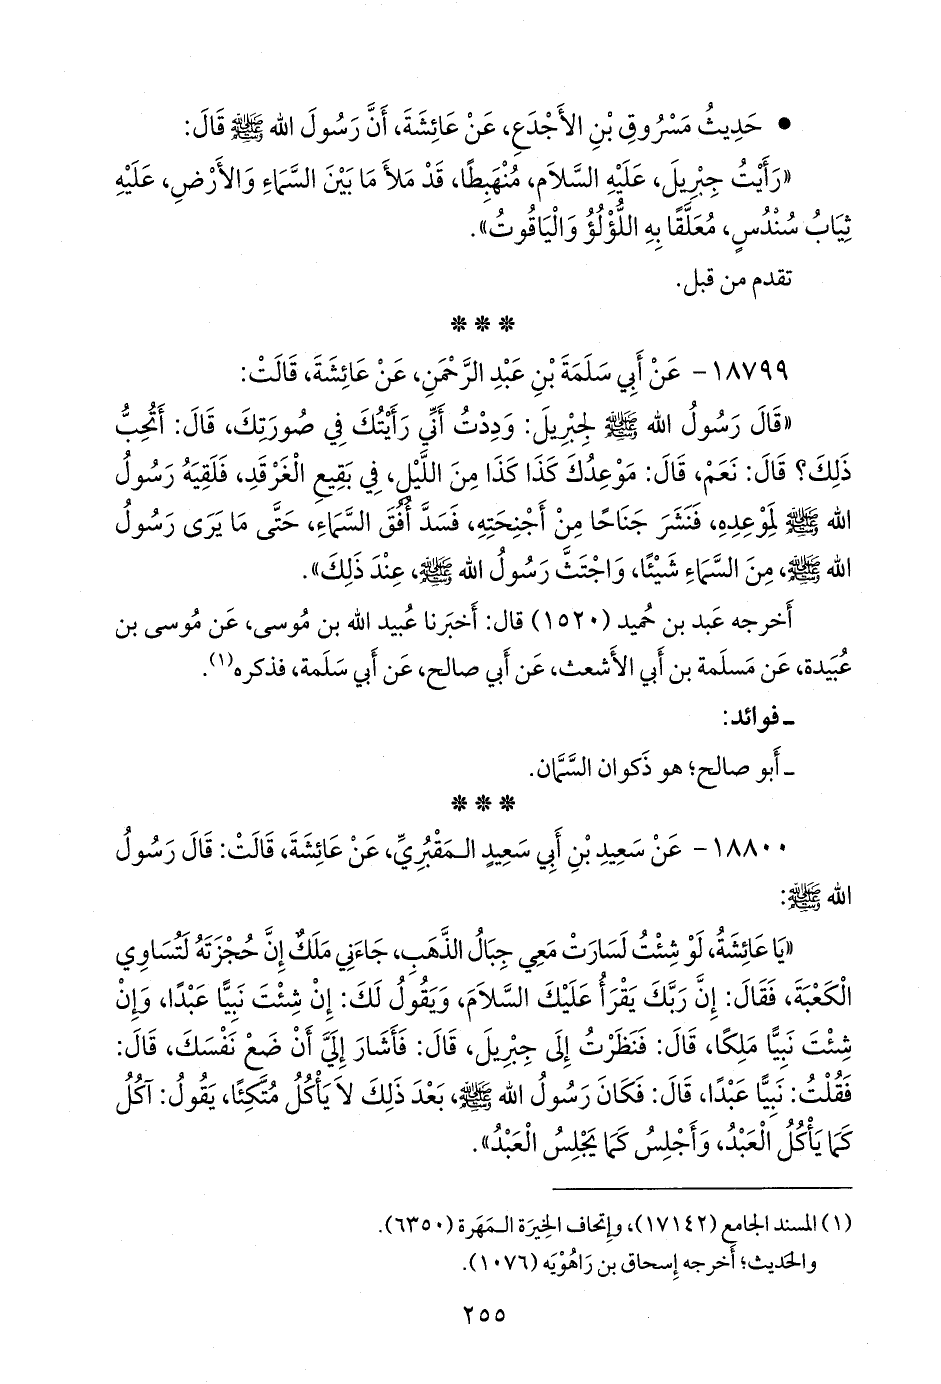 • حَدِيثُ مَسْرُوقِ بْنِ الأَجْدَعِ، عَنْ عَائِشَةَ، أَنَّ رَسُولَ الله ﷺ قَالَ:
«رَأَيْتُ جِبْرِيلَ، عَلَيْهِ السَّلاَم، مُنْهَبِطًا، قَدْ مَلأَ مَا بَيْنَ السَّمَاءِ وَالأَرْضِ، عَلَيْهِ
ثِيَابُ سُنْدُسٍ، مُعَلَّقًا بِهِ اللُّؤْلُؤُ وَالْيَاقُوتُ».
تقدم من قبل.
* * *
١٨٧٩٩ - عَنْ أَبِي سَلَمَةَ بْنِ عَبْدِ الرَّحْمَنِ، عَنْ عَائِشَةَ، قَالَتْ:
«قَالَ رَسُولُ الله ﷺ لِجِبْرِيلَ: وَدِدْتُ أَنِّي رَأَيْتُكَ فِي صُورَتِكَ، قَالَ: أَتُحِبُّ
ذَلِكَ؟ قَالَ: نَعَمْ، قَالَ: مَوْعِدُكَ كَذَا كَذَا مِنَ اللَّيْلِ، فِي بَقِيعِ الْغَرْقَدِ، فَلَقِيَهُ رَسُولُ
الله ﷺ لِمَوْعِدِهِ، فَنَشَرَ جَنَاحًا مِنْ أَجْنِحَتِهِ، فَسَدَّ أُفُقَ السَّمَاءِ، حَتَّى مَا يَرَى رَسُولُ
الله ﷺ، مِنَ السَّمَاءِ شَيْئًا، وَاجْتَثَّ رَسُولُ الله ﷺ، عِنْدَ ذَلِكَ».
أَخرجه عَبد بن حُميد (١٥٢٠) قال: أَخبَرنا عُبيد الله بن مُوسى، عَن مُوسى بن
عُبَيدة، عَن مَسلَمة بن أَبي الأَشعث، عَن أَبي صالح، عَن أَبي سَلَمة، فذكره(١).
ـ فوائد:
ـ أَبو صالح؛ هو ذَكوان السَّمَّان.
* * *
١٨٨٠٠ - عَنْ سَعِيدِ بْنِ أَبِي سَعِيدٍ الـمَقْبُرِيِّ، عَنْ عَائِشَةَ، قَالَتْ: قَالَ رَسُولُ
الله ﷺ:
«يَا عَائِشَةُ، لَوْ شِئْتُ لَسَارَتْ مَعِي جِبَالُ الذَّهَبِ، جَاءَنِي مَلَكٌ إِنَّ حُجْزَتَهُ لَتُسَاوِي
الْكَعْبَةَ، فَقَالَ: إِنَّ رَبَّكَ يَقْرَأُ عَلَيْكَ السَّلاَمَ، وَيَقُولُ لَكَ: إِنْ شِئْتَ نَبِيًّا عَبْدًا، وَإِنْ
شِئْتَ نَبِيًّا مَلِكًا، قَالَ: فَنَظَرْتُ إِلَى جِبْرِيلَ، قَالَ: فَأَشَارَ إِلَيَّ أَنْ ضَعْ نَفْسَكَ، قَالَ:
فَقُلْتُ: نَبِيًّا عَبْدًا، قَالَ: فَكَانَ رَسُولُ الله ﷺ، بَعْدَ ذَلِكَ لاَ يَأْكُلُ مُتَّكِئًا، يَقُولُ: آكُلُ
كَمَا يَأْكُلُ الْعَبْدُ، وَأَجْلِسُ كَمَا يَجْلِسُ الْعَبْدُ».
(١) المسند الجامع (١٧١٤٢)، وإتحاف الخِيرَة الـمَهَرة (٦٣٥٠).
والحَديث؛ أَخرجه إِسحاق بن رَاهُوْيَه (١٠٧٦).
٢٥٥